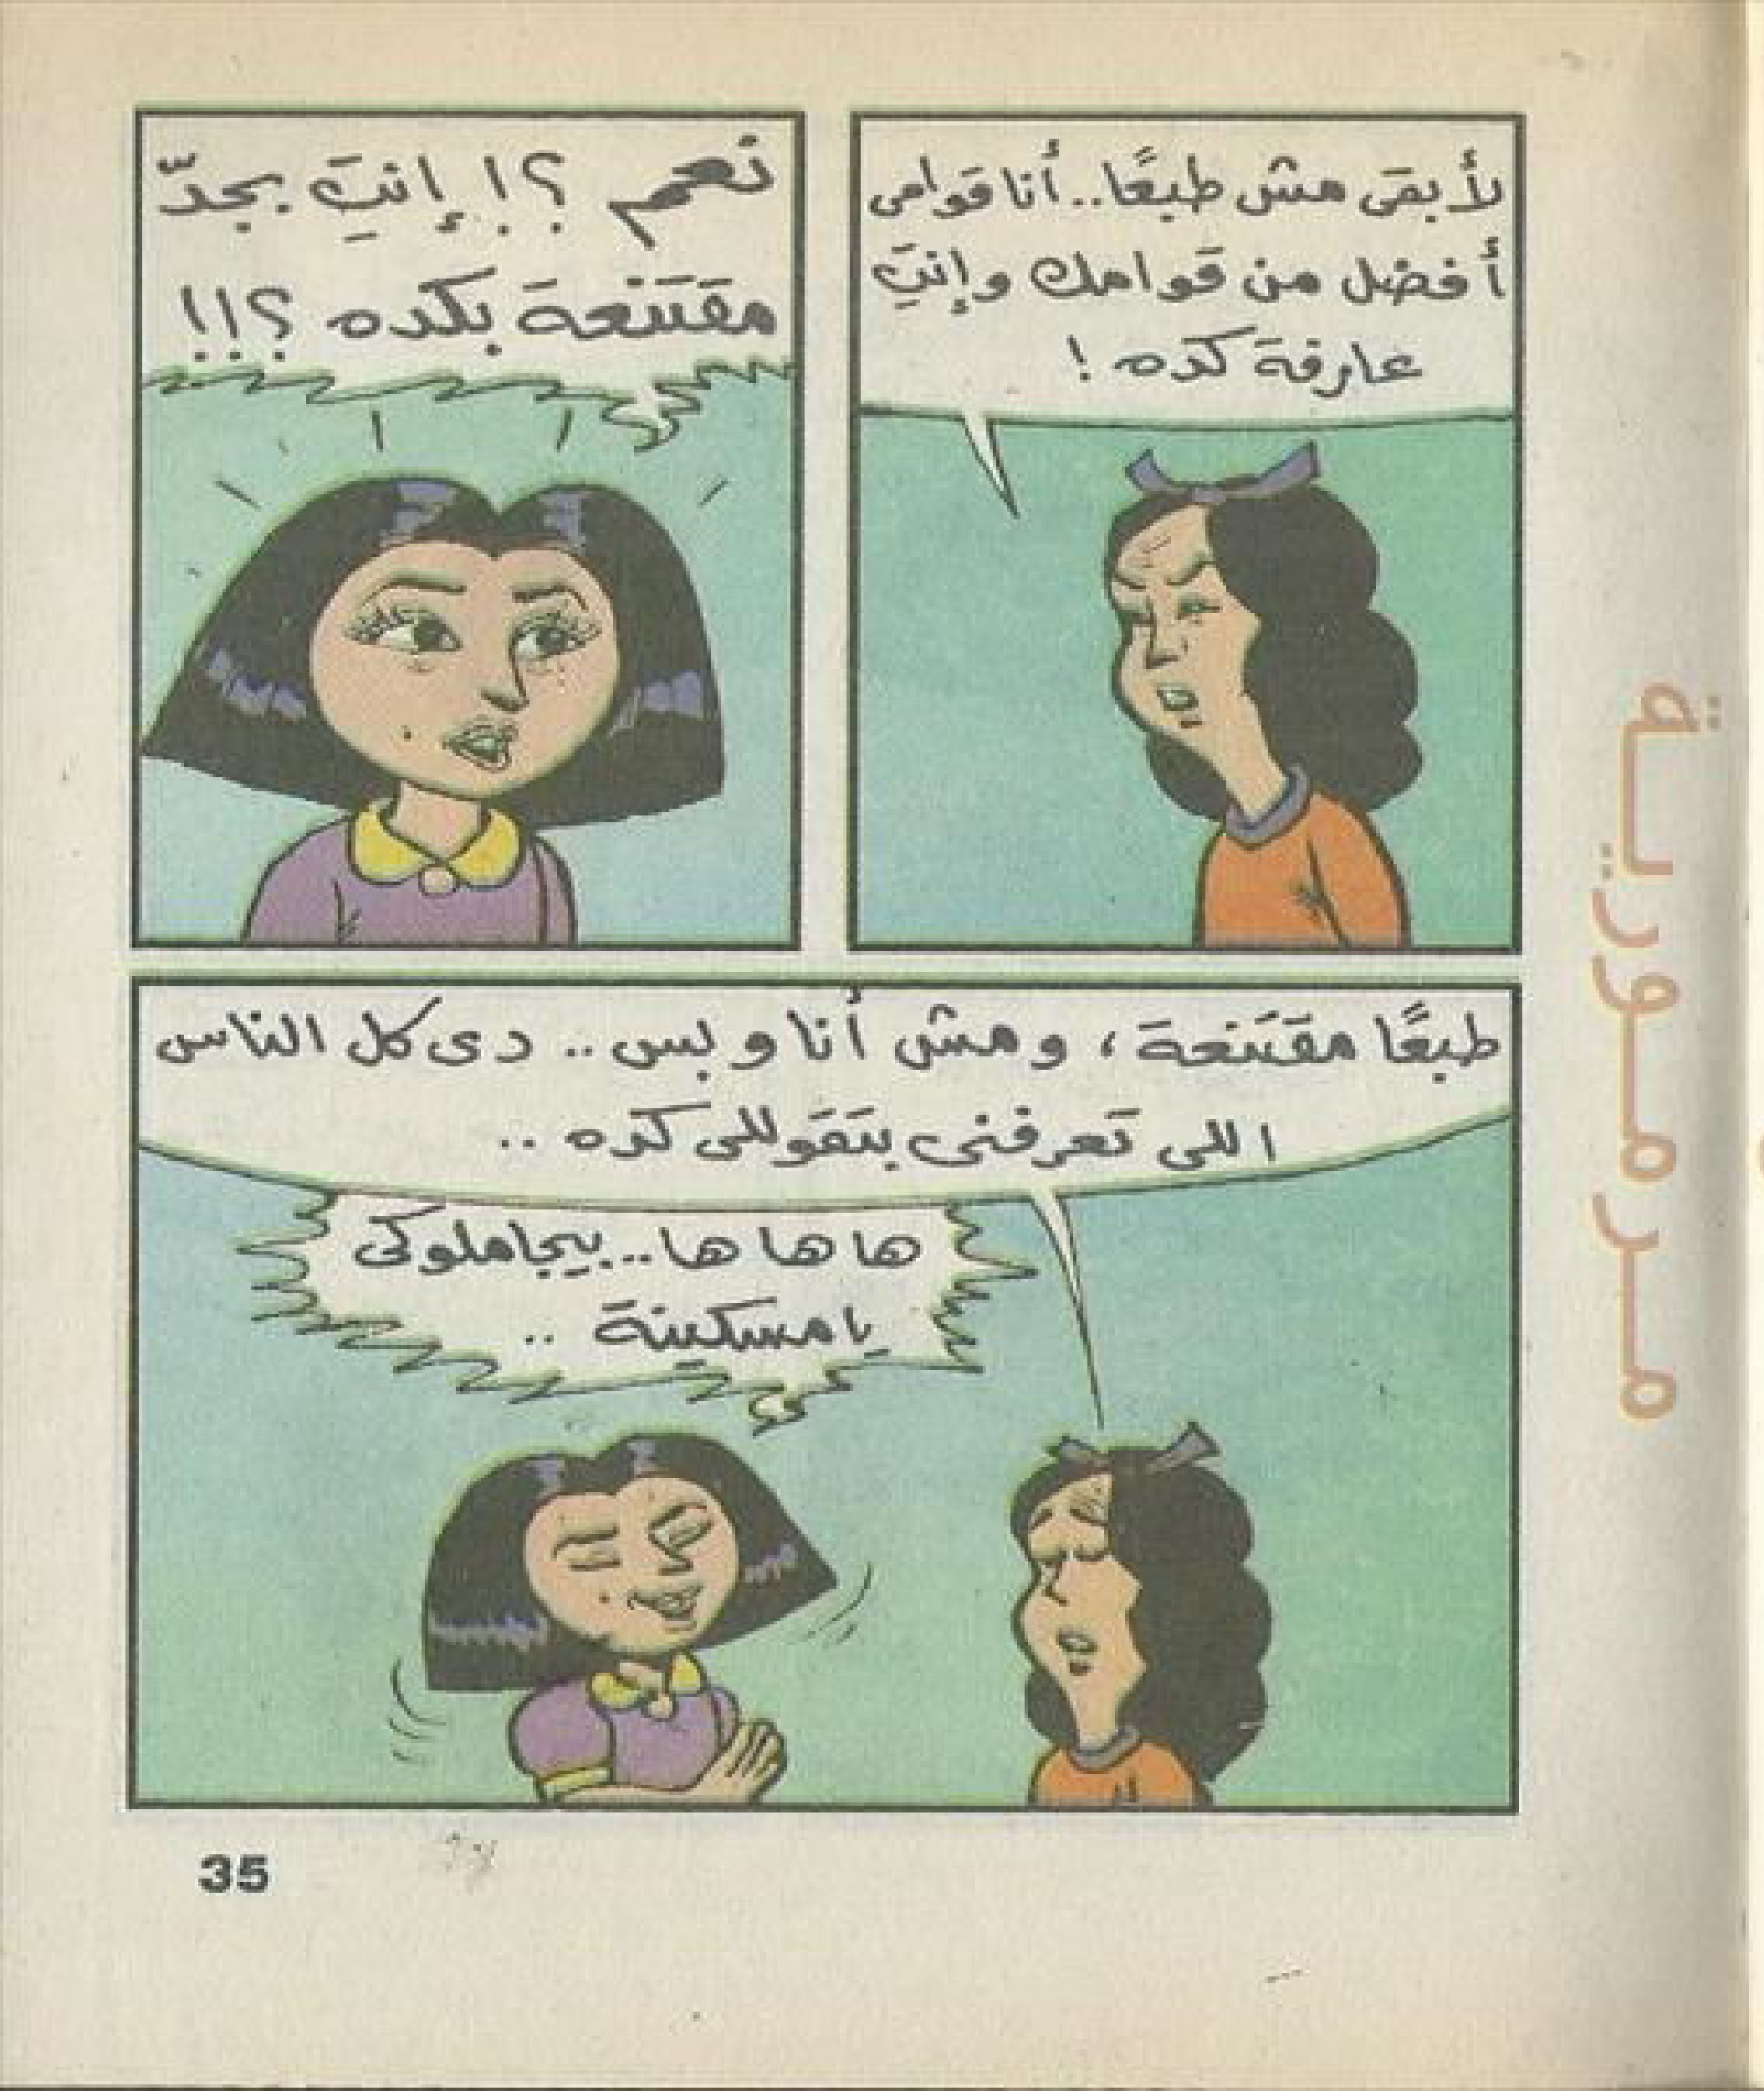 لأ بقى مش طبعًا.. أنا قوامى
أفضل من قوامك وإنتِ
عارفة كده !
نعم ؟! إنتِ بجدّ
مقتنعة بكده ؟!!
طبعًا مقتنعة، ومش أنا وبس .. دى كل الناس
اللى تعرفنى بتقوللى كده ..
ها ها ها .. بيجاملوكى
يا مسكينة ..
مرمورية
35